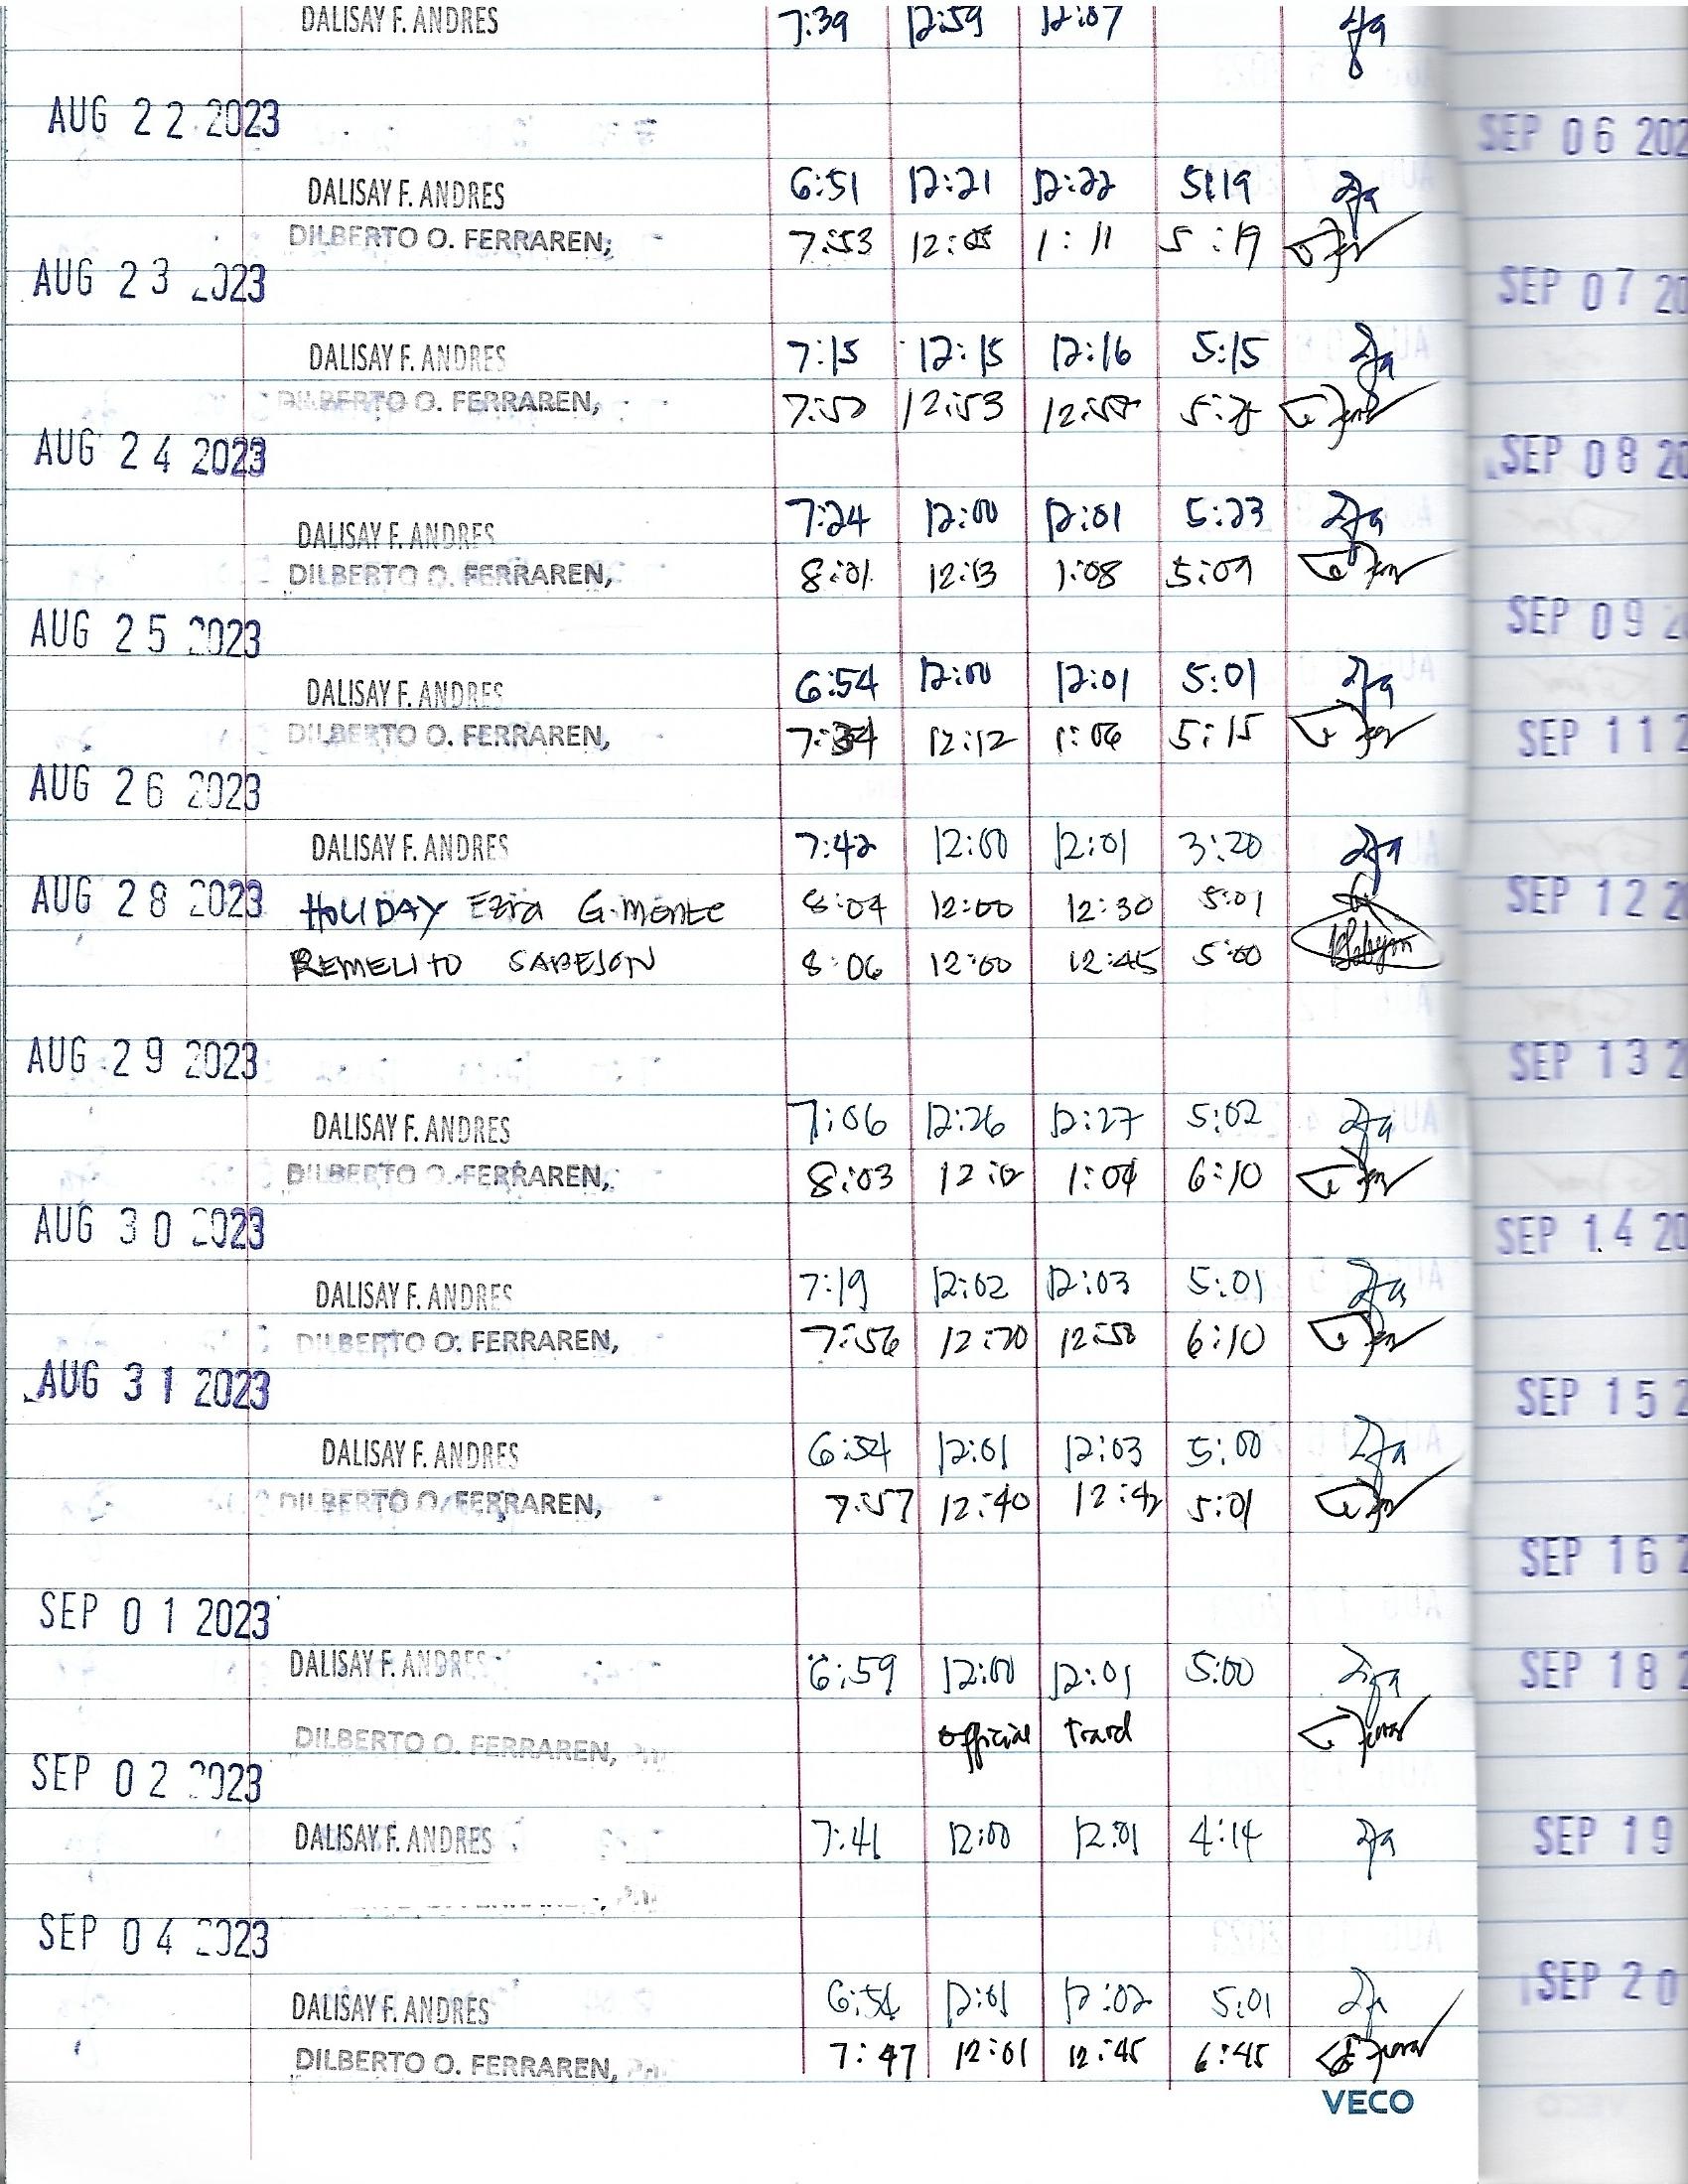 DALISAY F. ANDRES 7:39 12:59 12:07
AUG 22 2023
SEP 06 202
DALISAY F. ANDRES 6:51 12:21 12:22 5:19
DILBERTO O. FERRAREN, 7:53 12:05 1:11 5:19
AUG 23 2023
SEP 07 20
DALISAY F. ANDRES 7:15 12:15 12:16 5:15
DILBERTO O. FERRAREN, 12:53
AUG 24 2023
SEP 08 20
DALISAY F. ANDRES 7:24 12:00 12:01 5:23
DILBERTO O. FERRAREN, 8:01 12:13 1:08 5:09
AUG 25 2023
SEP 09 2
DALISAY F. ANDRES 6:54 12:00 12:01 5:01
DILBERTO O. FERRAREN, 7:34 12:12 1:06 5:15
SEP 11 2
AUG 26 2023
DALISAY F. ANDRES 7:42 12:00 12:01 3:20
AUG 28 2023 HOLIDAY Ezra G. monte 8:04 12:00 12:30 5:01
SEP 12 20
REMELITO SABEJON 8:06 12:00 12:45 5:00
AUG 29 2023
SEP 13 2
DALISAY F. ANDRES 7:06 12:26 12:27 5:02
DILBERTO O. FERRAREN, 8:03 12:12 1:04 6:10
AUG 30 2023
SEP 14 20
DALISAY F. ANDRES 7:19 12:02 12:03 5:01
DILBERTO O. FERRAREN, 7:56 12:20 12:58 6:10
AUG 31 2023
SEP 15 2
DALISAY F. ANDRES 6:54 12:01 12:03 5:00
DILBERTO O. FERRAREN, 7:57 12:40 12:42 5:01
SEP 16 2
SEP 01 2023
DALISAY F. ANDRES 6:59 12:00 12:01 5:00
SEP 18 2
DILBERTO O. FERRAREN, official
SEP 02 2023
DALISAY F. ANDRES 7:41 12:00 12:01 4:14
SEP 19
SEP 04 2023
SEP 20
DALISAY F. ANDRES 6:54 12:01 12:02 5:01
DILBERTO O. FERRAREN, 7:47 12:01 12:45 6:45
VECO